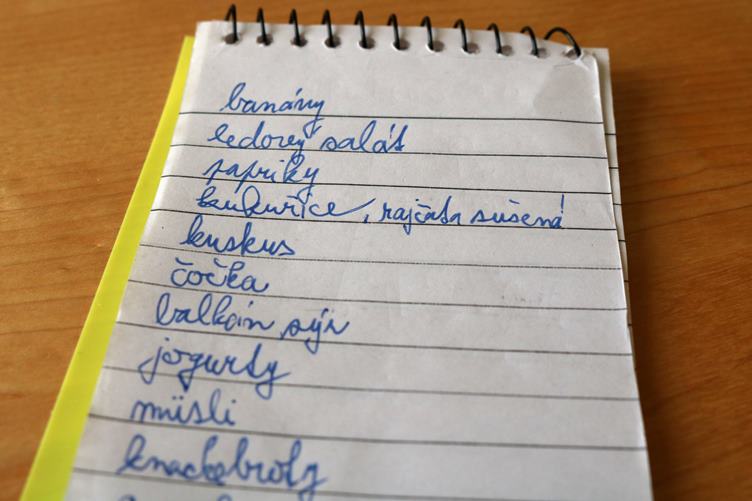 banány
ledový salát
papriky
kukuřice, rajčata sušená
kuskus
čočka
balkán sýr
jogurty
müsli
knackebroty